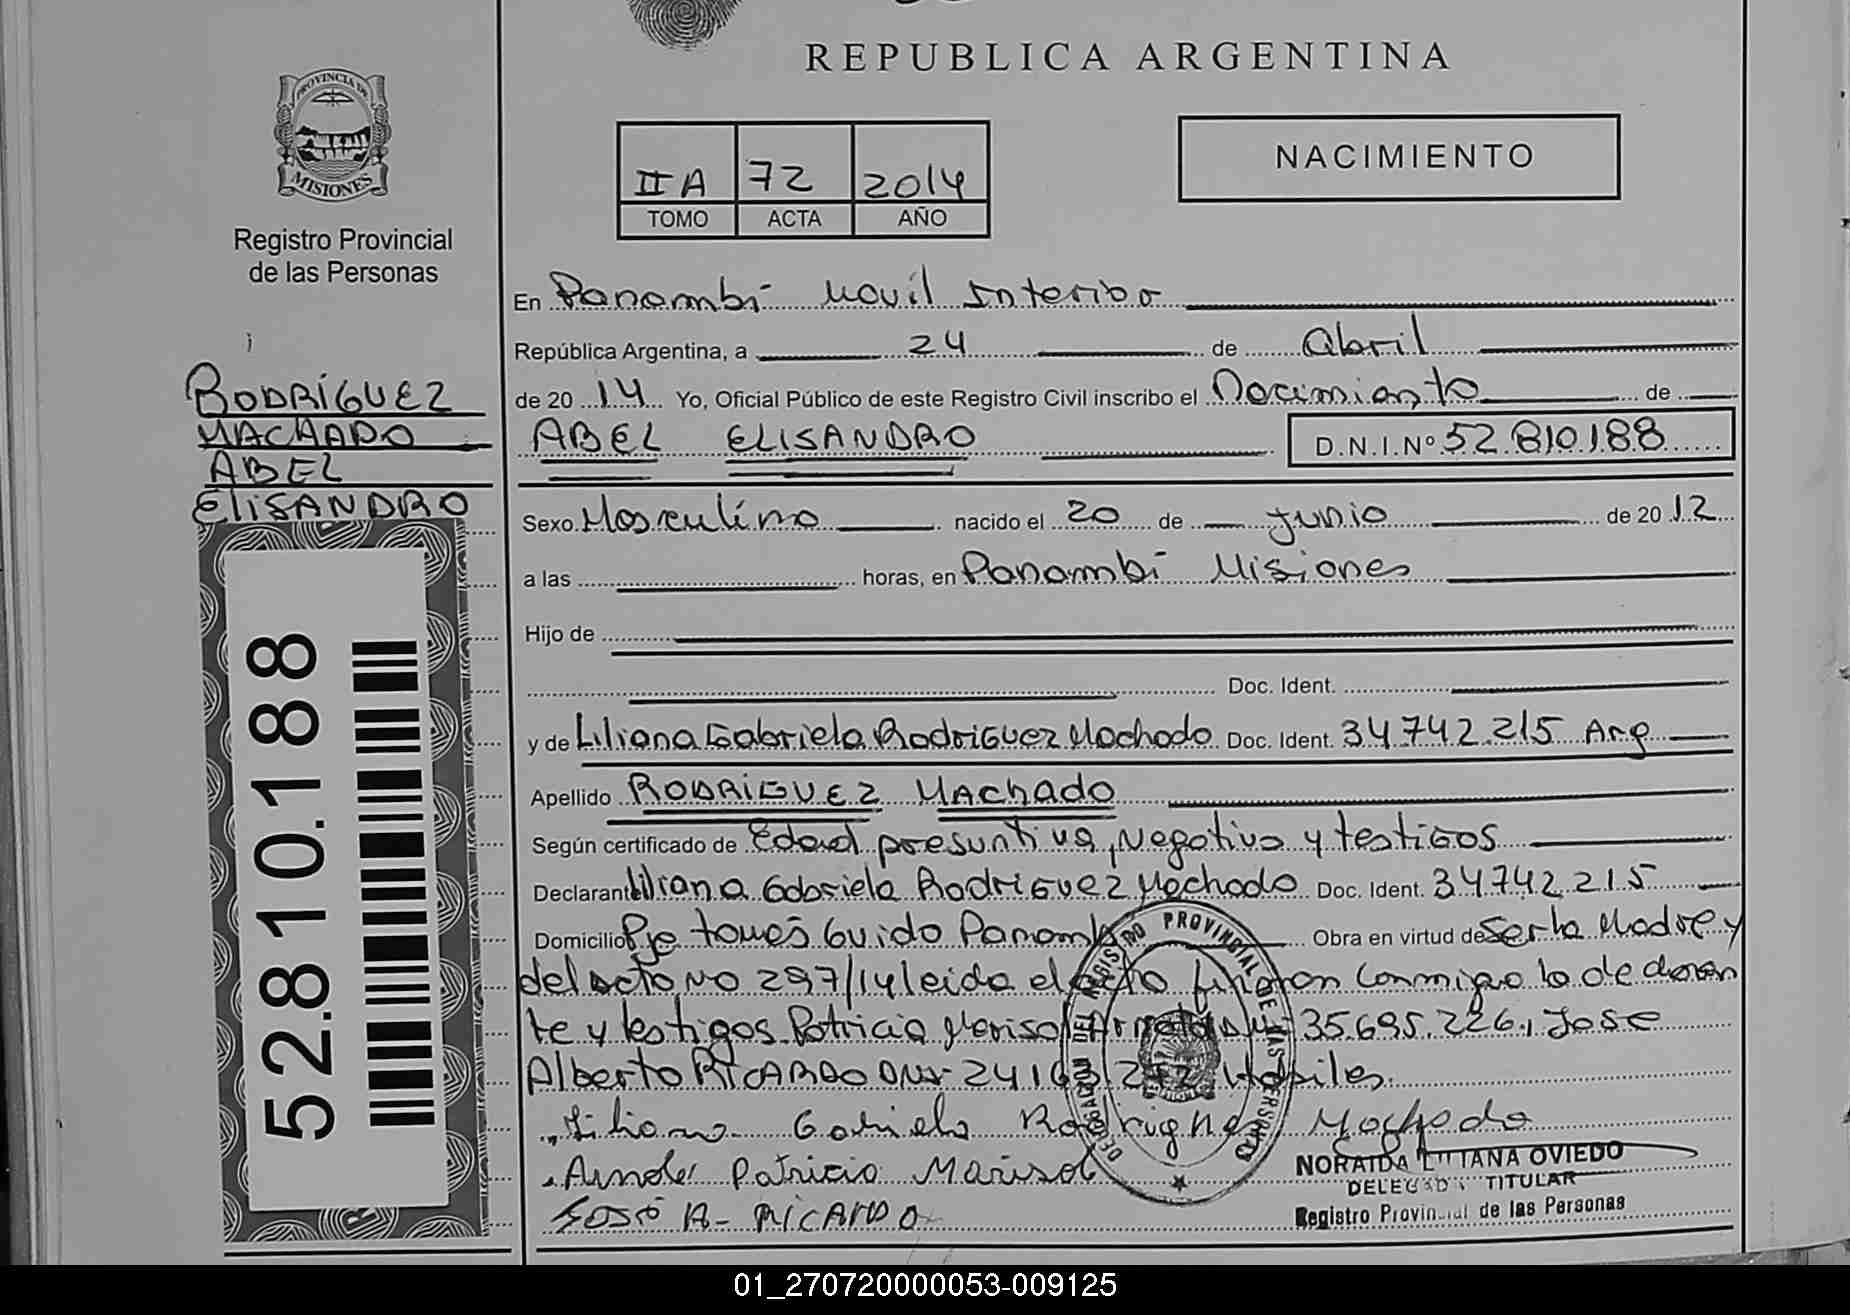 REPUBLICA ARGENTINA
PROVINCIA DE
MISIONES
Registro Provincial
de las Personas
II A 72 2014
TOMO ACTA AÑO
NACIMIENTO
RODRÍGUEZ
MACHADO
ABEL
ELISANDRO
52.810.188
En Panambí Movil Interior
República Argentina, a 24 de abril
de 20 14 Yo, Oficial Público de este Registro Civil inscribo el Nacimiento de
ABEL ELISANDRO D.N.I.Nº 52.810.188
Sexo Masculino nacido el 20 de Junio de 20 12
a las horas, en Panambí Misiones
Hijo de
Doc. Ident.
y de Liliana Gabriela Rodriguez Machado Doc. Ident. 34.742.215 Arg
Apellido RODRIGUEZ MACHADO
Según certificado de Edad presuntiva, Negativo y testigos
Declarante Liliana Gabriela Rodriguez Machado Doc. Ident. 34742.215
Domicilio Pje tomás Guido Panambí Obra en virtud de Ser la Madre y
del acto No 297/14 leida el acto firman conmigo la declaran
te y testigos Patricia Marisol 35.695.226, Jose
Alberto RICARDO DNI 24.163.272
Liliana Gabriela Rodrigue Machado
Patricia Marisol
José A- RICARDO
DELEGACION DEL REGISTRO PROVINCIAL DE LAS PERSONAS
NORAIDA LILIANA OVIEDO
DELEGADA TITULAR
Registro Provincial de las Personas
01_270720000053-009125